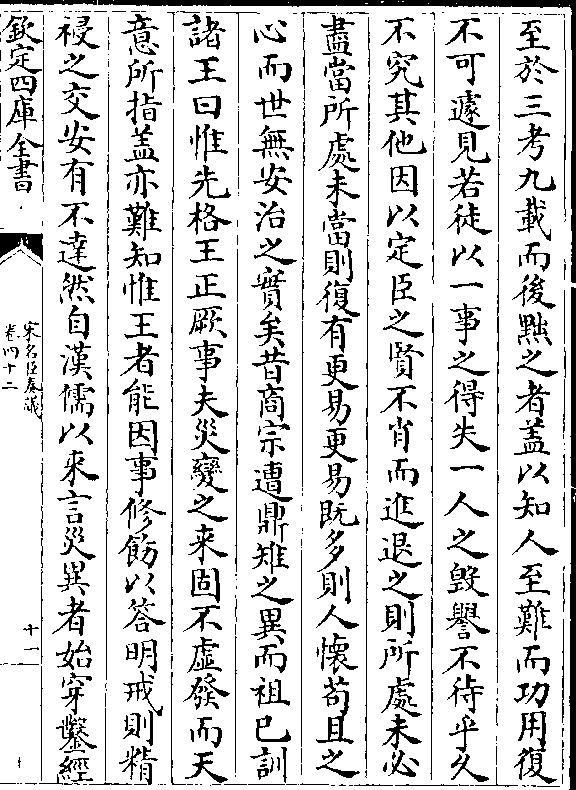 至於三考九載而後黜之者蓋以知人至難而功用復
不可遽見若徒以一事之得失一人之毀譽不待乎久
不究其他因以定臣之賢不肖而進退之則所處未必
盡當所處未當則復有更易更易既多則人懷茍且之
心而世無安治之實矣昔商宗遭鼎雉之異而祖已訓
諸王曰惟先格王正厥事夫災變之来固不虛發而天
意所指蓋亦難知惟王者能因事修飭以答明戒則精
祲之交安有不達然自漢儒以來言災異者始穿鑿經
欽定四庫全書
宋名臣奏議
卷四十二
十一